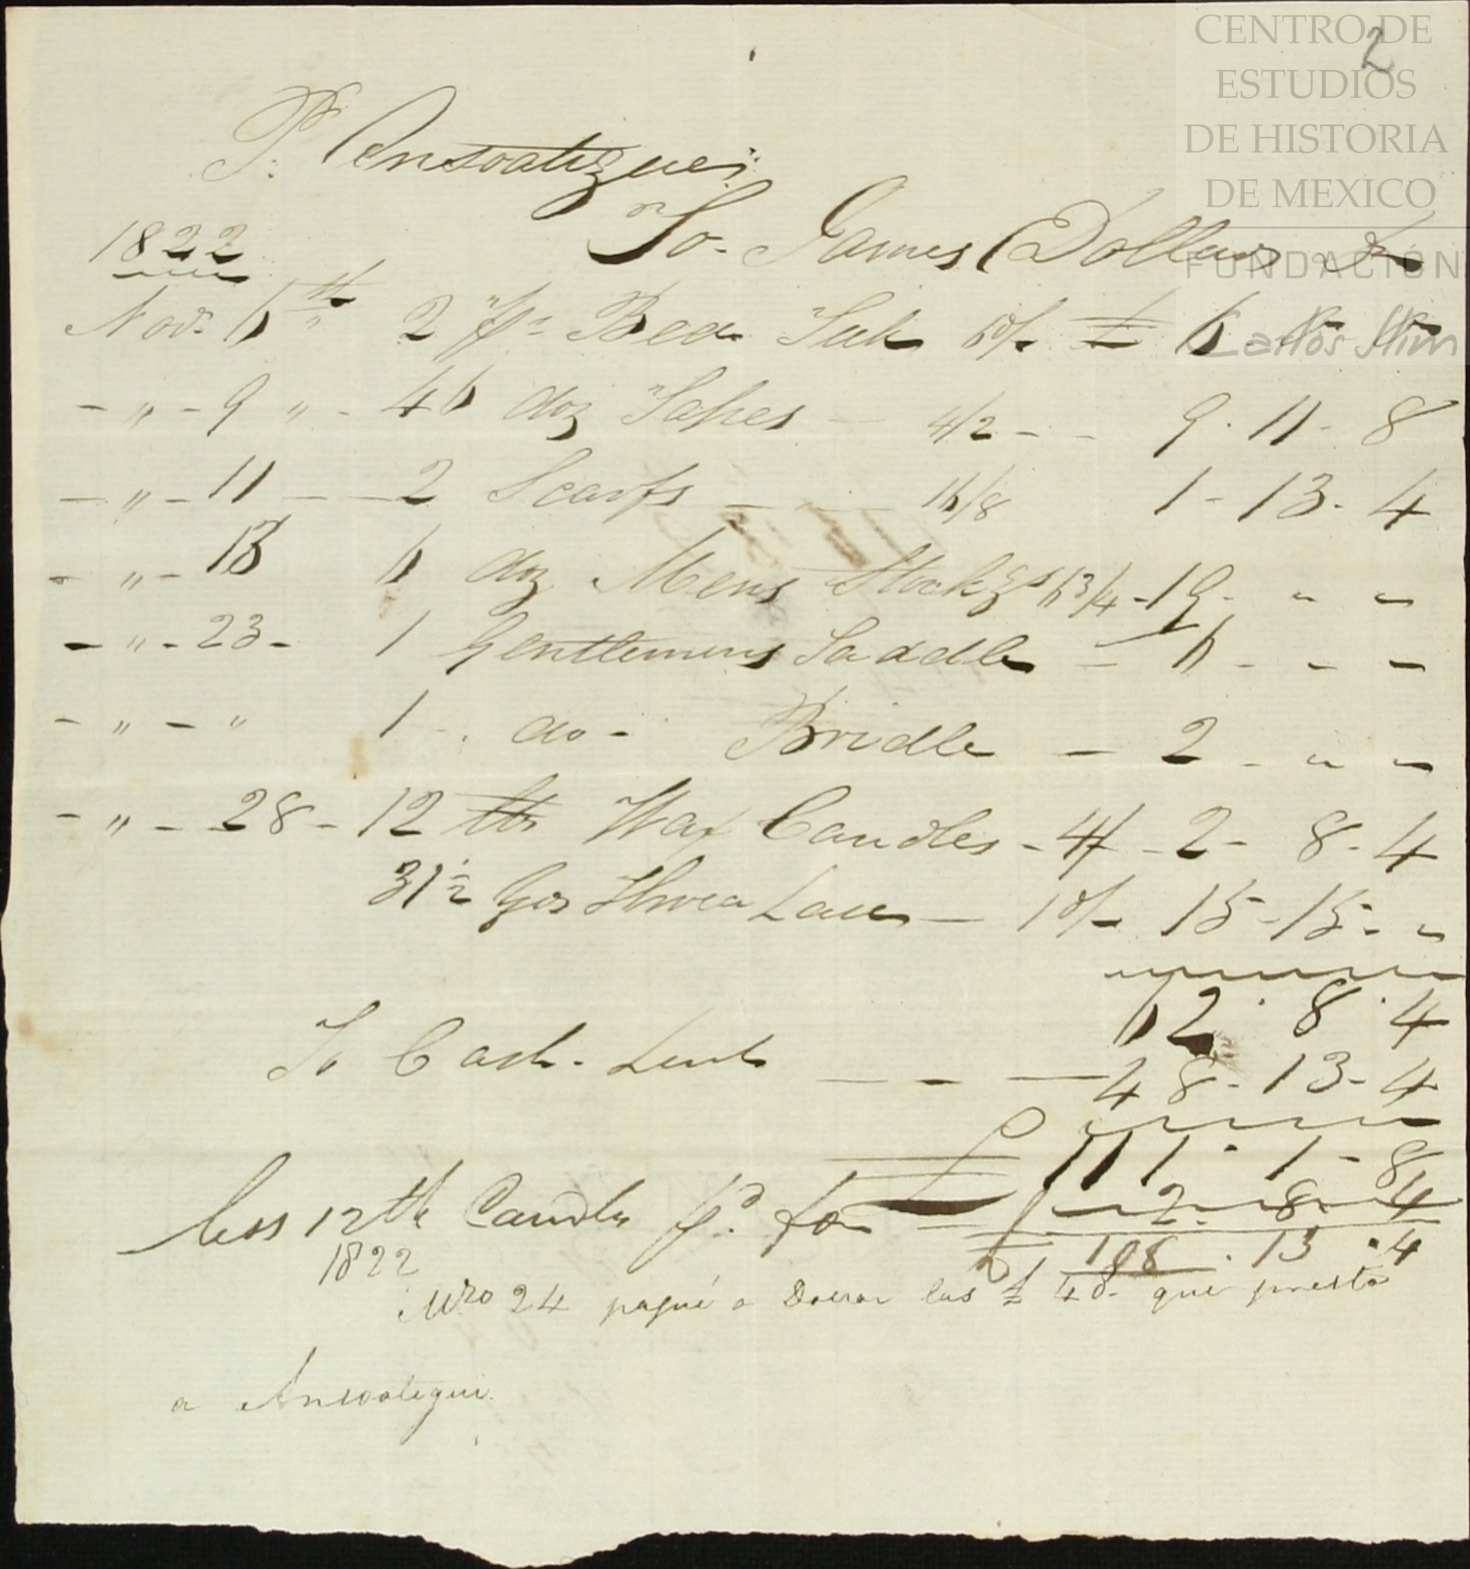 CENTRO DE
ESTUDIOS
DE HISTORIA
DE MEXICO
FUNDACIÓN
Carlos Slim
2
P. Ansoategui
1822
To James Dollars Dr
Novr 6th 2 ps Bed 60/- £ 6 " "
- " - 9 " - 46 doz Tapes - 4/2 - - 9 . 11 - 8
- " - 11 - - 2 Scarfs - - 16/8 1 - 13 - 4
- " - 13 6 doz Mens Stockgs 63/4 - 19 - " "
- " - 23 - 1 Gentlemens Saddle - 6 - - -
- " - " 1 - do - Bridle - 2 - " "
- " - 28 - 12 lbs Wax Candles - 4/ - 2 - 8 - 4
31½ Lace - 10/- 15 - 15 - "
62 . 8 . 4
To Cash Lent - - - 48 - 13 - 4
£ 111 - 1 - 8
less 12 lb Candles pd for - 2 - 8 - 4
£ 108 . 13 . 4
1822
24 pagué a las £ 48 - que presto
a Ansoategui.